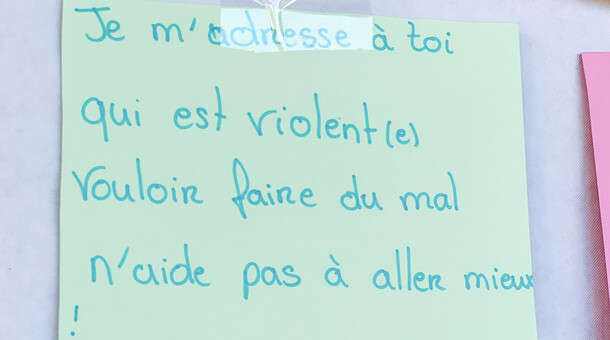 Je m'adresse à toi
qui est violent(e)
Vouloir faire du mal
n'aide pas à aller mieux
!